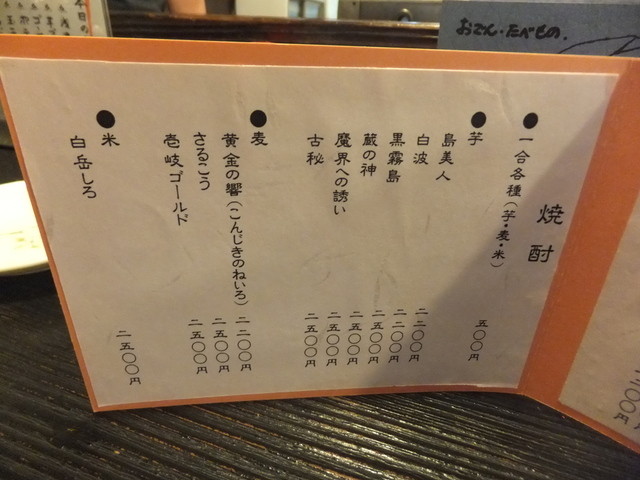 おでん・たべもの.
焼酎
●一合各種(芋・麦・米) 五〇〇円
●芋
島美人 二二〇〇円
白波 二二〇〇円
黒霧島 二五〇〇円
蔵の神 二五〇〇円
魔界への誘い 二五〇〇円
古秘 二五〇〇円
●麦
黄金の響(こんじきのねいろ) 二二〇〇円
さるこう 二五〇〇円
壱岐ゴールド 二五〇〇円
●米
白岳しろ 二五〇〇円